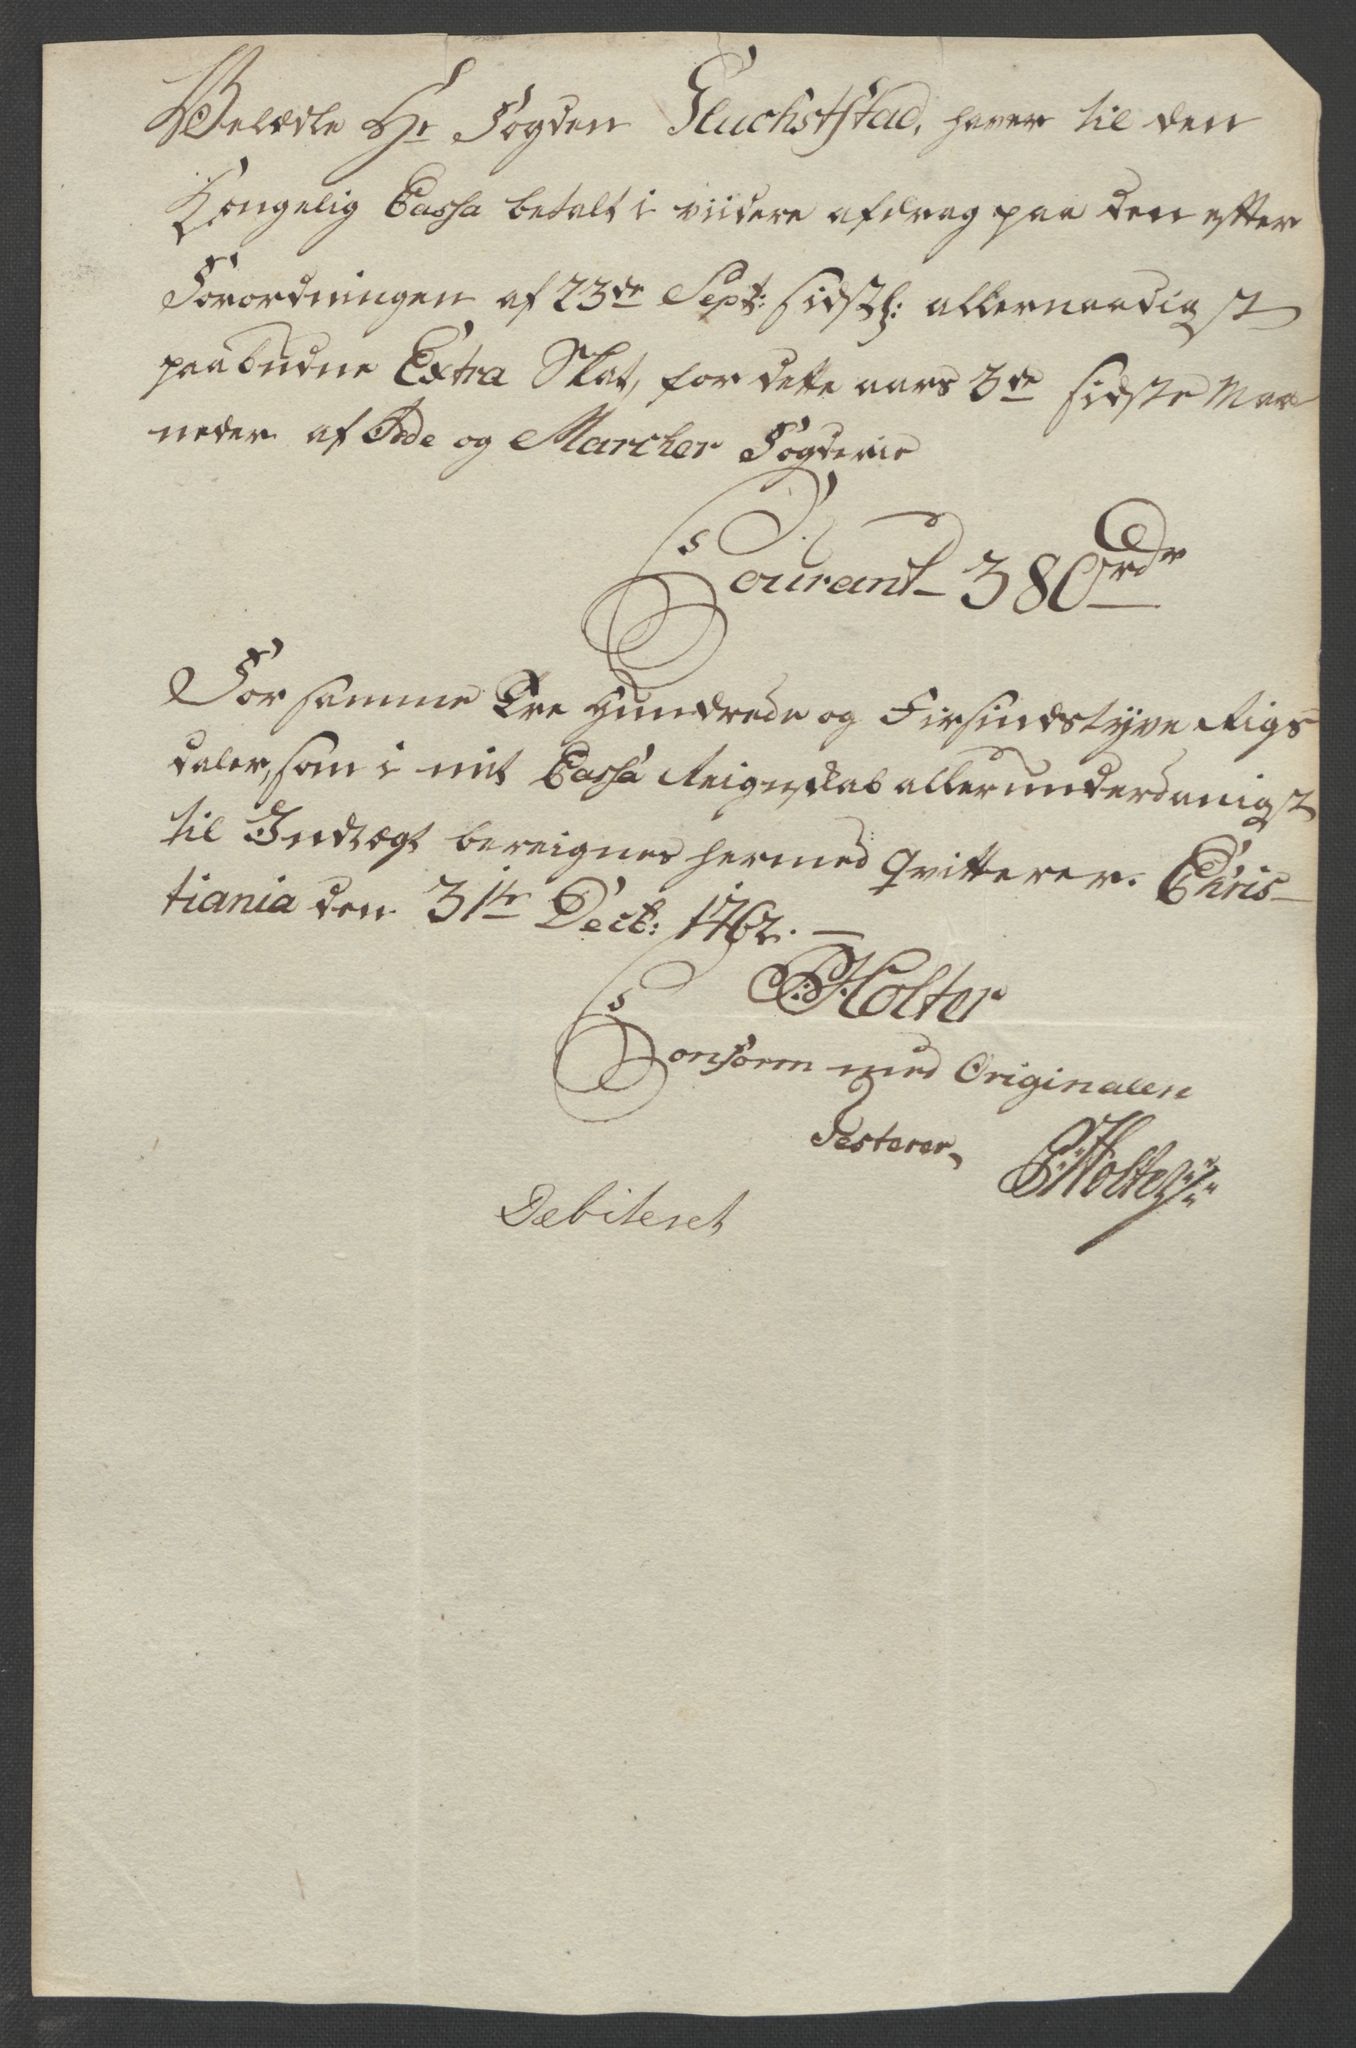 Velædle Hr Fogden Gluchstftad, haver til den
Kongelig Cassa betalt i viidere afdrag paa den efter
Forordningen af 23de Sept: sidstl: allernaadigst
paabudne Extra Skat, for dette aars 3de sidste Maa
neder af Ide og Marcher Fogderie
Courant 380 rdr
For samme Tre Hundrede og Firsindstyve Rigs
daler, som i mit Cassa Reigenskab allerunderdanigst
til Indtægt bereignes hermed qvitterer. Chris-
tiania den 31te Decb: 1762. —
Holter
Conform med Originalen
Testerer,
Holter
Debiteret